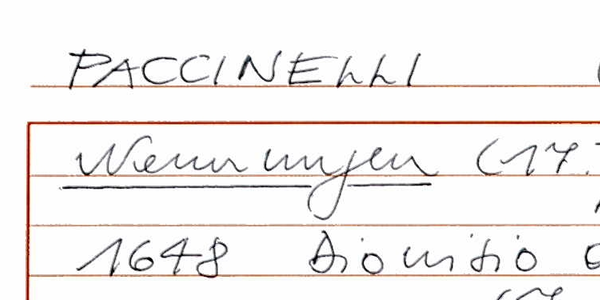 PACCINELLI (
Nennungen (17.
1648 Dionisio